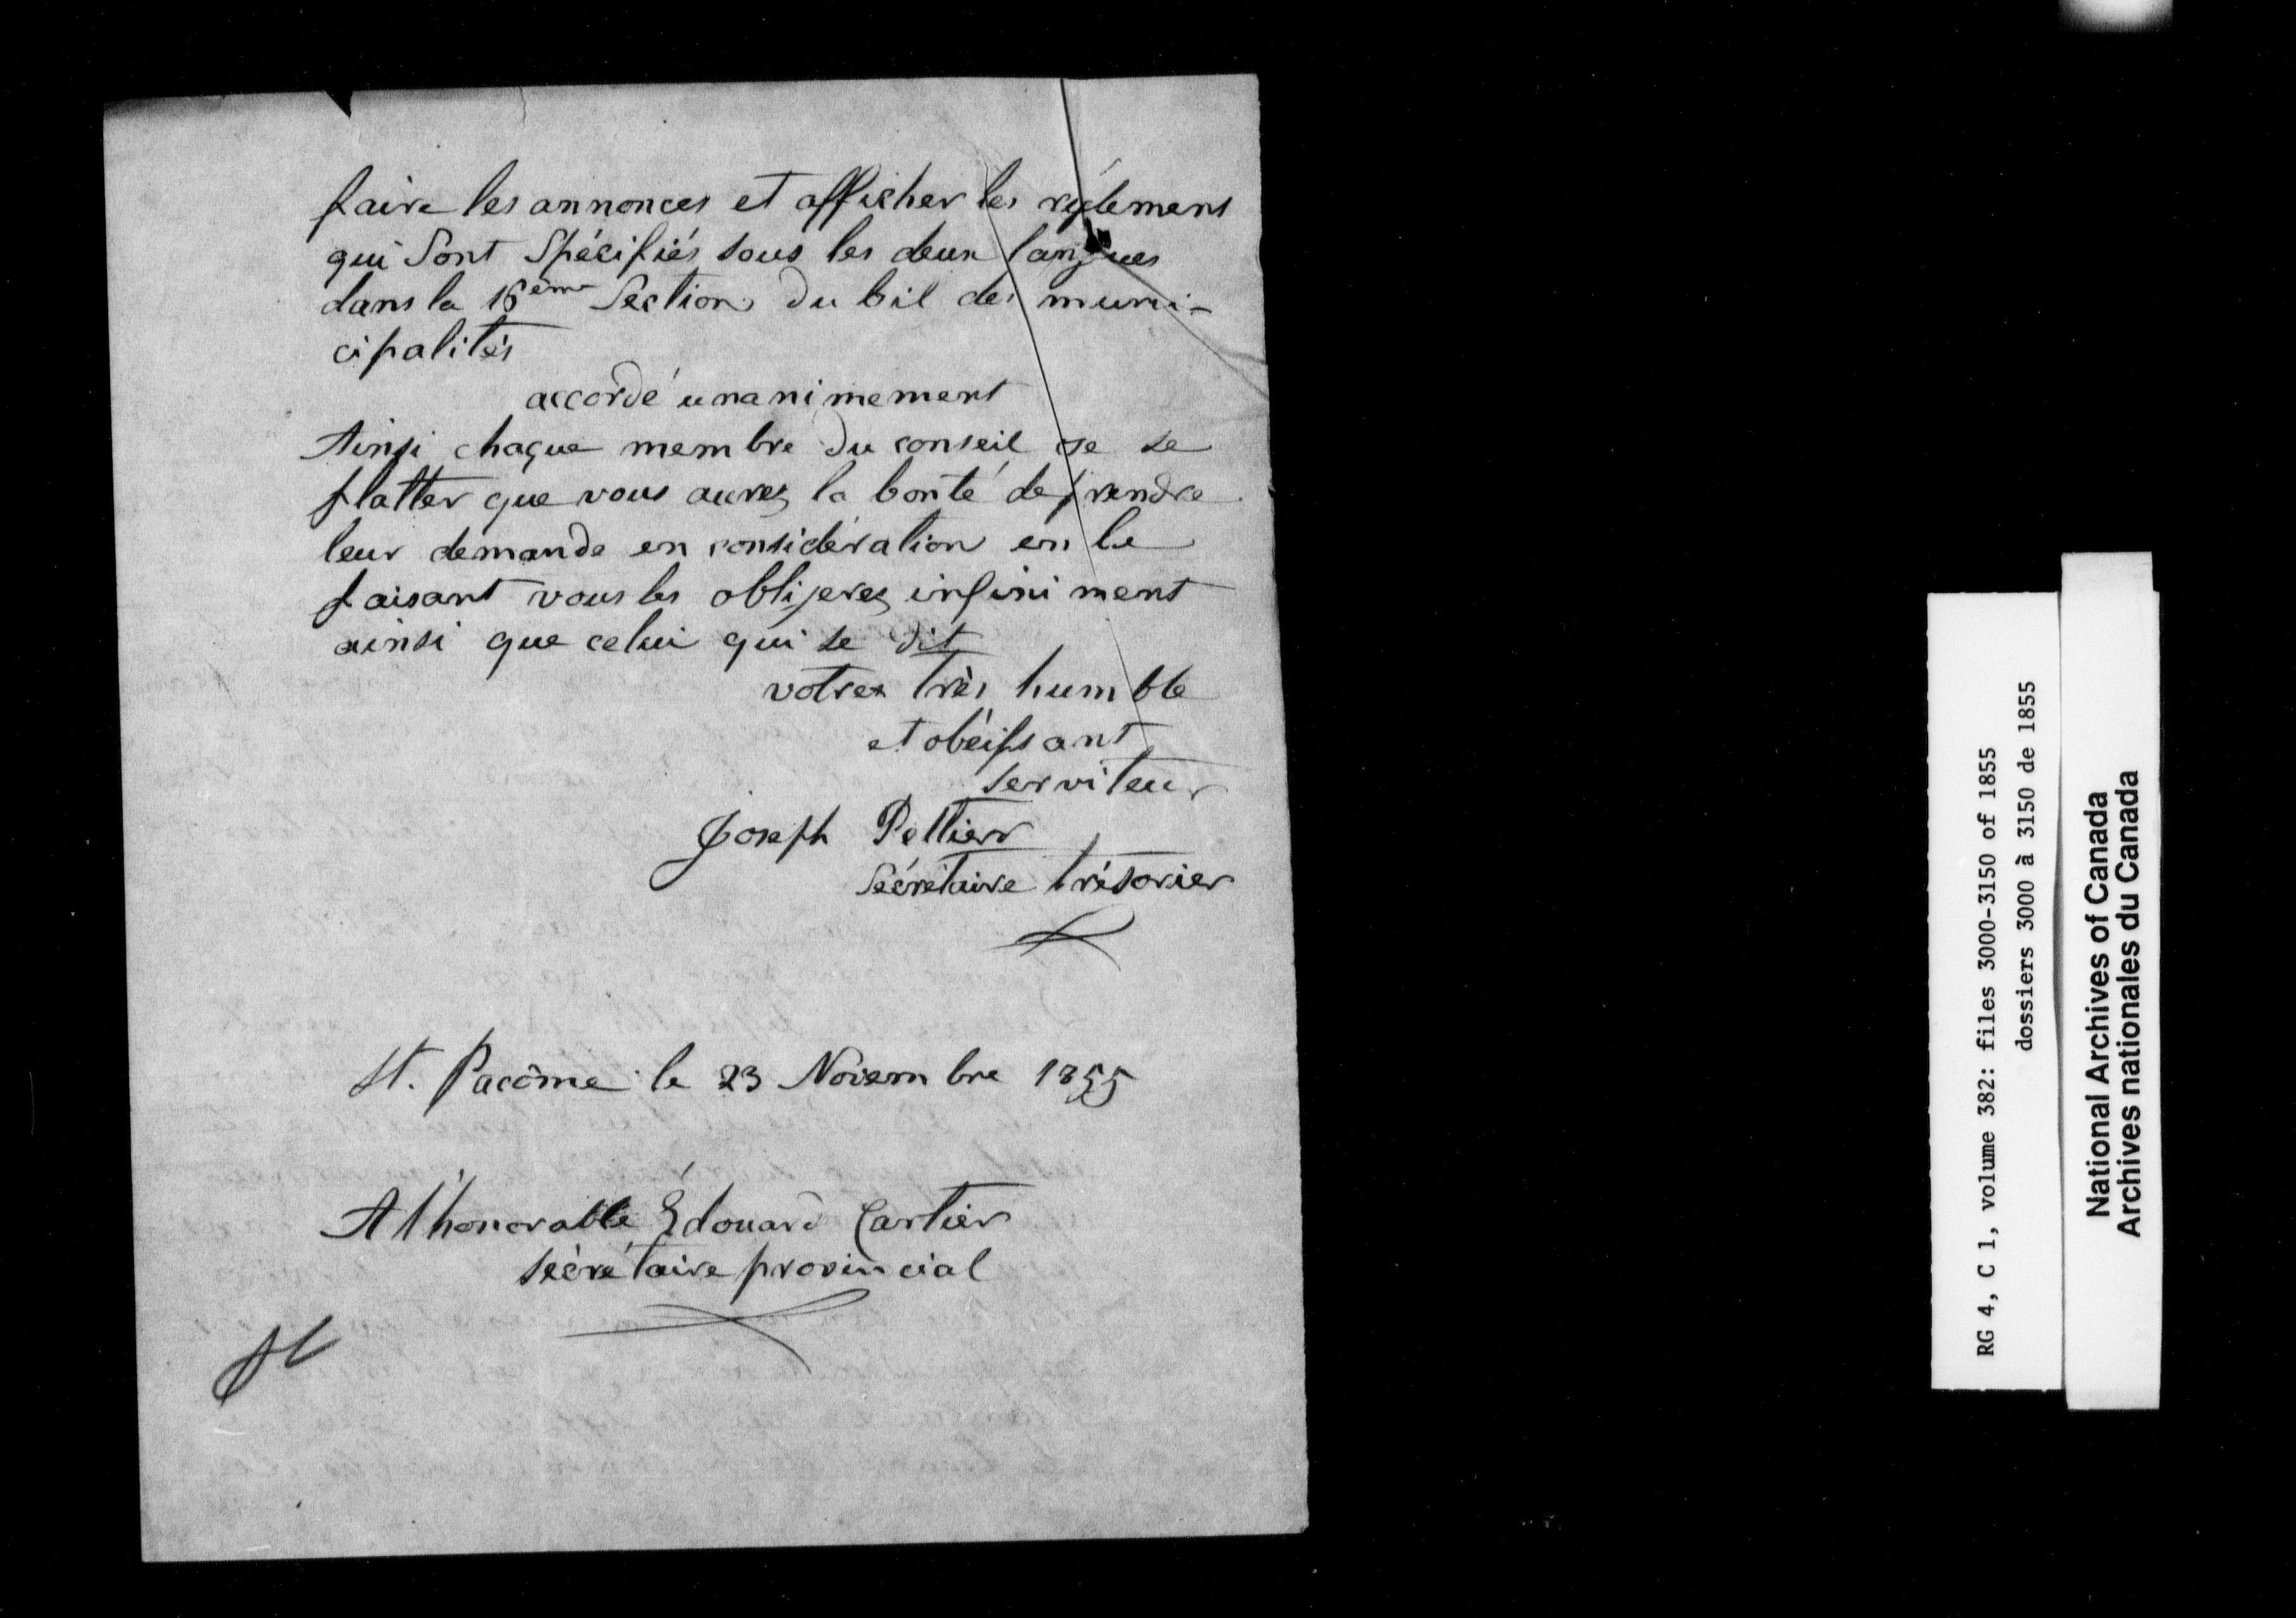 faire les annonces et afficher les réglemens
qui Sont Spécifiés sous les deux langues
dans la 16ème Section du bil des muni-
cipalités
accordé unanimement
Ainsi chaque membre du conseil ose se
flatter que vous aurez la bonté de prendre
leur demande en considération en le
faisant vous les obligerez infiniment
ainsi que celui qui se dit
votre très humble
et obéissant
serviteur
Joseph Pelltier
Sécrétaire trésorier
St. Pacôme le 23 Novembre 1855
A l'honorable Édouard Cartier
sécrétaire provincial
RG 4, C 1, volume 382: files 3000-3150 of 1855
dossiers 3000 à 3150 de 1855
National Archives of Canada
Archives nationales du Canada